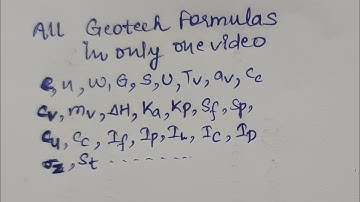 All Geotech Formulas
In only one video
e, n, W, G, S, U, Tv, av, Cc
Cv, mv, ΔH, Ka, Kp, Sf, Sp,
Cu, Cc, If, Ip, IL, Ic, ID
σz, St ........